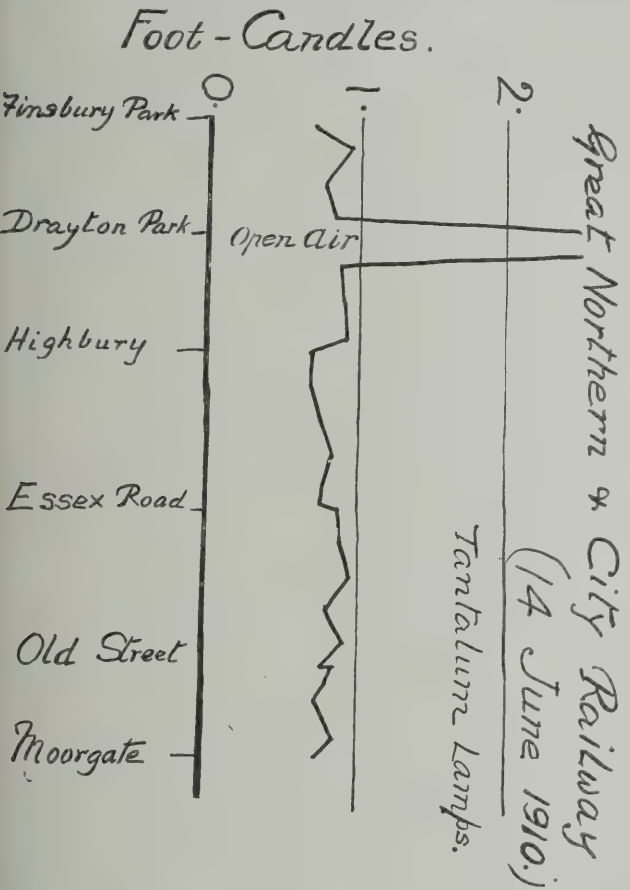 Foot-Candles.
0.
1.
2.
Finsbury Park
Drayton Park
Open Air
Highbury
Essex Road
Old Street
Moorgate
Great Northern & City Railway
(14 June 1910.)
Tantalum Lamps.